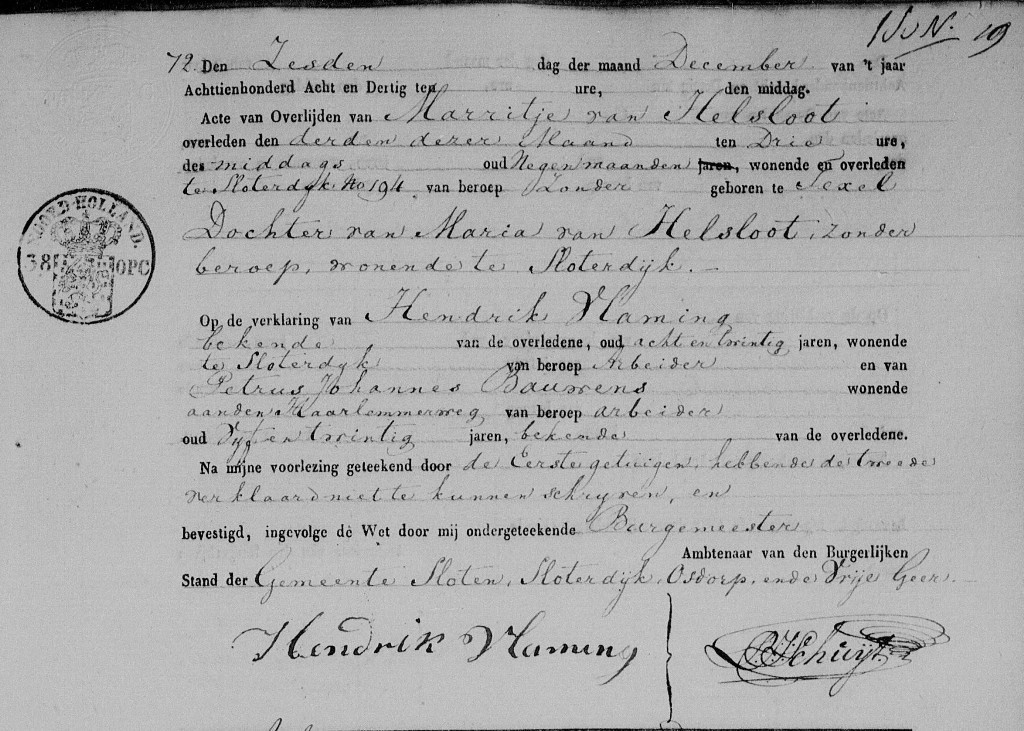 19
72. Den Zesden dag der maand December van 't jaar
Achttienhonderd Acht en Dertig ten ure, den middag.
Acte van Overlijden van Marritje van Helsloot
overleden den derden dezer Maand ten Drie ure,
des middags oud Negen maanden jaren, wonende en overleden
te Sloterdyk No 194 van beroep Zonder geboren te Texel
Dochter van Maria van Helsloot, zonder
beroep, wonende te Sloterdijk.
NOORD-HOLLAND.
38 OPC
Op de verklaring van Hendrik Vlaming
bekende van de overledene, oud acht en twintig jaren, wonende
te Sloterdyk van beroep Arbeider en van
Petrus Johannes Bauwens wonende
aan den Haarlemmerweg van beroep arbeider
oud Vyf en twintig jaren, bekende van de overledene.
Na mijne voorlezing geteekend door de Eerste getuigen, hebbende de tweede
verklaard niet te kunnen schryven, en
bevestigd, ingevolge de Wet door mij ondergeteekende Burgemeester
Ambtenaar van den Burgerlijken
Stand der Gemeente Sloten, Sloterdijk, Osdorp, ende Vrije Geer.
Hendrik Vlaming Schuyt